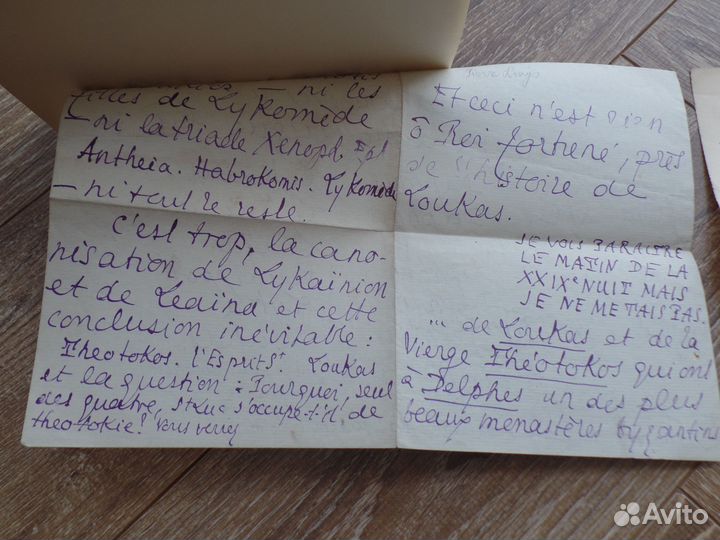 – ni les
filles de Lykomède
– ni la triade Xenoph. Eph
Antheia. Habrokomis. Lykomède
– ni tout le reste.
C'est trop, la cano-
nisation de Lykaïnion
et de Leaïna et cette
conclusion inévitable :
Theotokos. l'Esprit St. Loukas
et la question : Pourquoi, seul
des quatre, St Luc s'occupe-t-il de
theotokie? vous verrez
Et ceci n'est rien
ô Roi fortuné, près
de l'histoire de
Loukas.
JE VOIS PARAITRE
LE MATIN DE LA
XXIXe NUIT MAIS
JE NE ME TAIS PAS.
... de Loukas et de la
Vierge Théotokos qui ont
à Delphes un des plus
beaux monastères byzantins
Avito